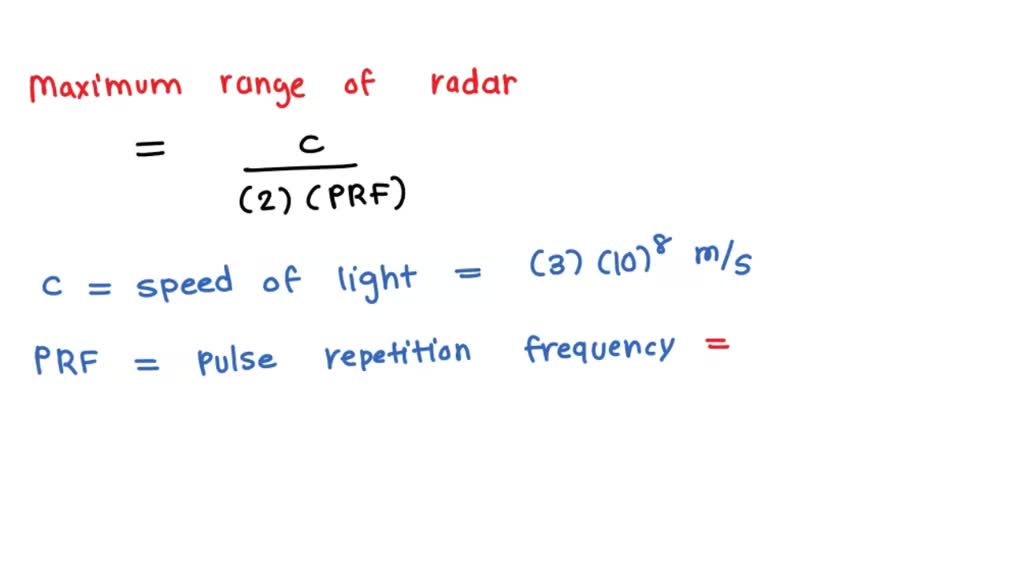 Maximum range of radar
= c
(2) (PRF)
c = speed of light = (3) (10)⁸ m/s
PRF = pulse repetition frequency =